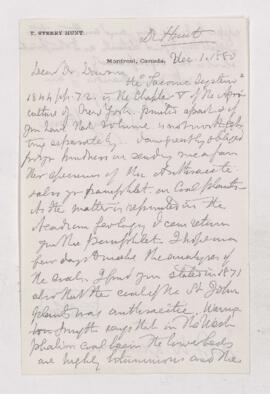 Dr Hunt
T. STERRY HUNT.
Montreal, Canada, Dec. 1. 1880
Dear Dr. Dawson
The "Taconic System"
1844 pp. 72 is the Chapter V of the Agri
culture of New York. printed apart if
you have that volume is not worth
ting separately. I am greatly obliged
for your kindness in sending me a far
ther specimen of the Anthracite
also for pamphlet on Coal plants
As the matter is reprinted in the
Acadian Geology I can return
you the pamphlet. I hope in a
few days to make the analyses of
the coals. I find you stated in 1871
also that the coal of the St John
plants was anthracitic. Waring
ton Smyth says that in the West
phalian coal basin the lower beds
are highly bituminous and the